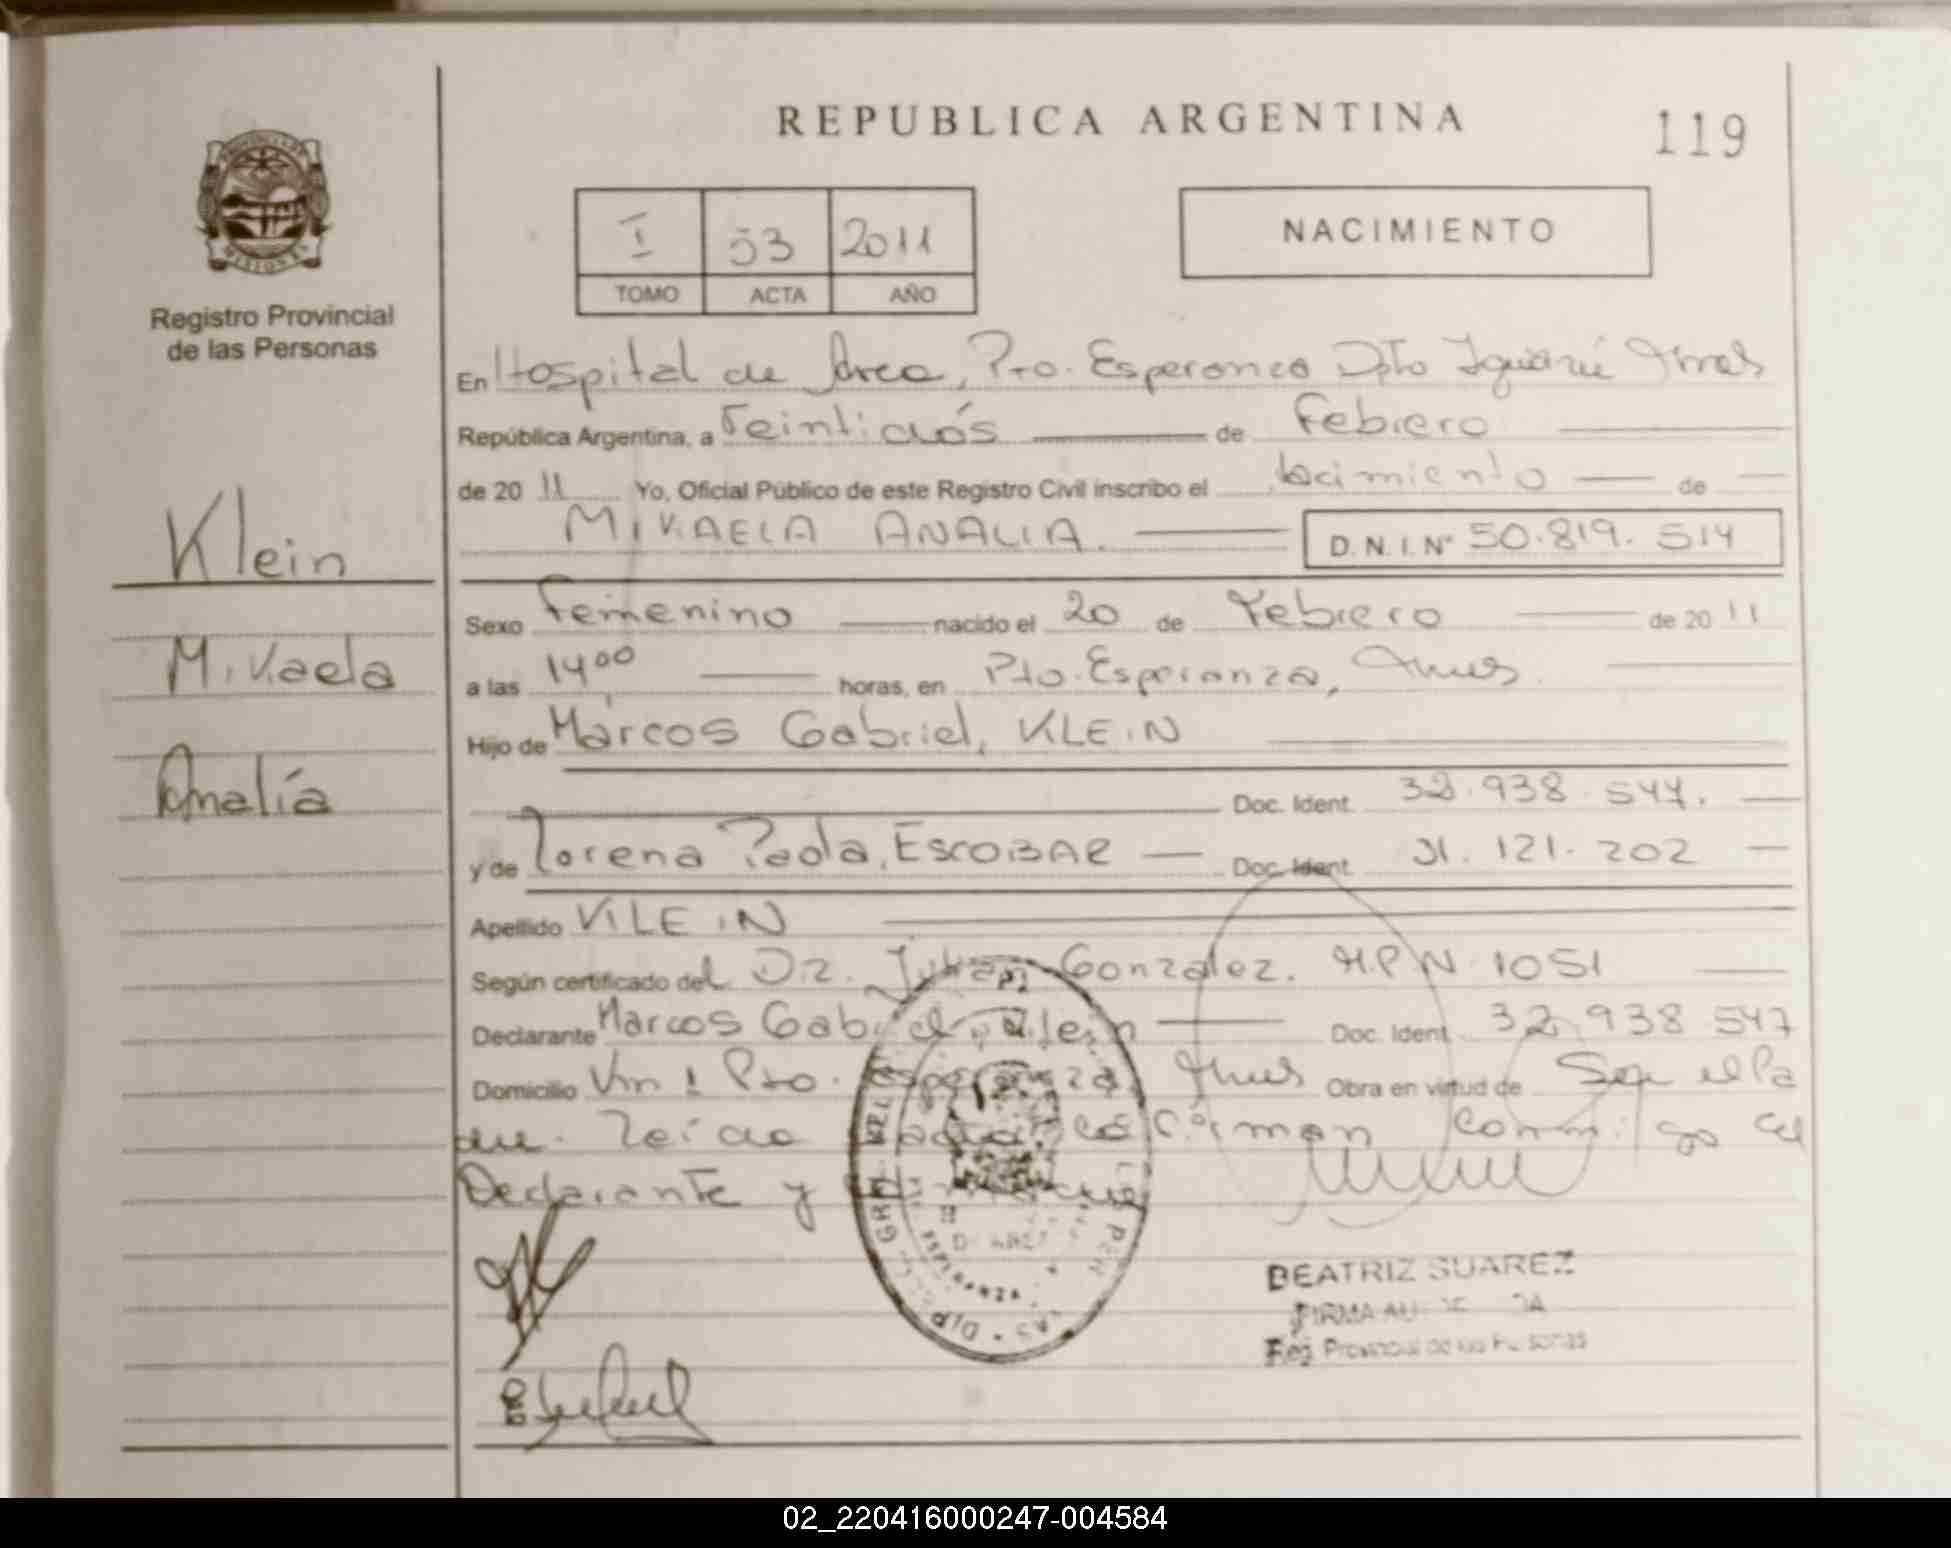 REPUBLICA ARGENTINA
119
I 53 2011
TOMO ACTA AÑO
NACIMIENTO
Registro Provincial
de las Personas
Klein
Mikaela
Analía
En Hospital de Area, Pto. Esperanza Dpto Iguazú Mnes
República Argentina, a Veintidós de Febrero
de 2011 Yo, Oficial Público de este Registro Civil inscribo el Nacimiento de
MIKAELA ANALIA. D.N.I.Nº 50.819.514
Sexo Femenino nacido el 20 de Febrero de 2011
a las 14 00 horas, en Pto. Esperanza, Mnes
Hijo de Marcos Gabriel, KLEIN
Doc. Ident. 32.938.547.
y de Lorena Paola, ESCOBAR Doc. Ident. 31.121.202
Apellido KLEIN
Según certificado del Dr. Julian Gonzalez. M.P.N 1051
Declarante Marcos Gabriel Klein Doc. Ident. 32.938.547
Domicilio Km 1 Pto. Esperanza, Mnes Obra en virtud de Ser el Pa
dre. Leída el acta la firman conmigo el
Declarante y
ESPERANZA
BEATRIZ SUAREZ
FIRMA
Reg. Provincial de las Personas
02_220416000247-004584